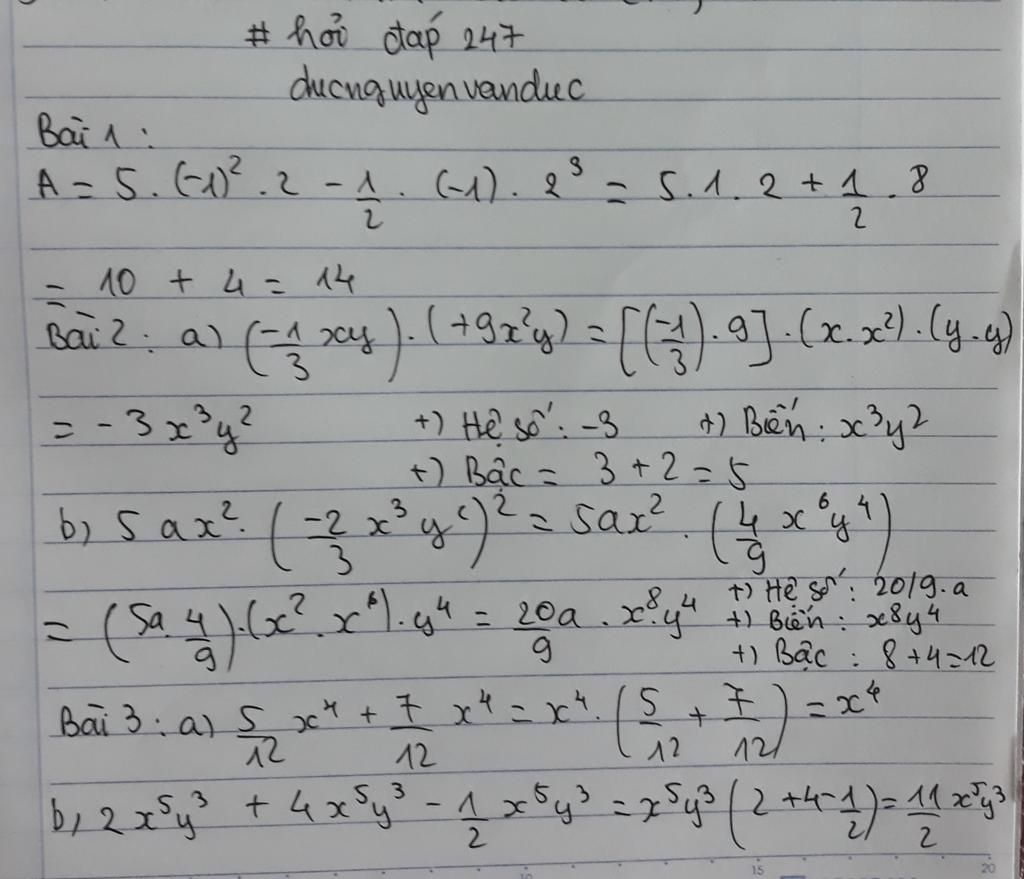 # hỏi đáp 247
ducnguyenvanduc
Bài 1 :
A = 5 . (-1)² . 2 - 1/2 . (-1) . 2³ = 5 . 1 . 2 + 1/2 . 8
= 10 + 4 = 14
Bài 2 : a) (-1/3 xy) . (+9x²y) = [(-1/3) . 9] . (x . x²) . (y . y)
= - 3 x³y² +) Hệ số : -3 +) Biến : x³y²
+) Bậc = 3 + 2 = 5
b) 5 ax² . (-2/3 x³ y²)² = 5ax² . (4/9 x⁶y⁴)
= (5a . 4/9) . (x² . x⁶) . y⁴ = 20a/9 . x⁸ . y⁴ +) Hệ số : 20/9 . a
+) Biến : x⁸y⁴
+) Bậc : 8 + 4 = 12
Bài 3 : a) 5/12 x⁴ + 7/12 x⁴ = x⁴ . (5/12 + 7/12) = x⁴
b) 2x⁵y³ + 4x⁵y³ - 1/2 x⁵y³ = x⁵y³ (2 + 4 - 1/2) = 11/2 x⁵y³
15
20